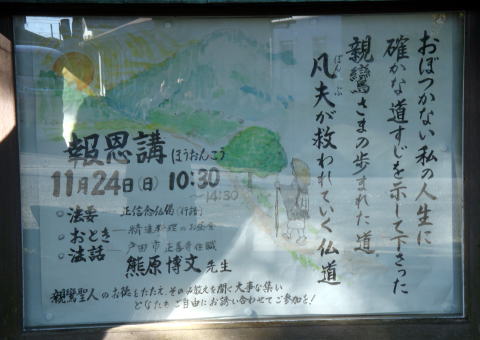 おぼつかない私の人生に
確かな道すじを示して下さった
親鸞さまの歩まれた道
凡夫が救われていく仏道
ぼんぶ
報恩講 ほうおんこう
11月24日(日) 10:30
〜14:30
○法要 正信念仏偈(行譜)
○おとき 精進料理のお昼食
○法話 戸田市 正善寺住職
熊原博文 先生
親鸞聖人のお徳をたたえ、そのみ教えを聞く大事な集い
どなたもご自由にお誘い合わせてご参加を!